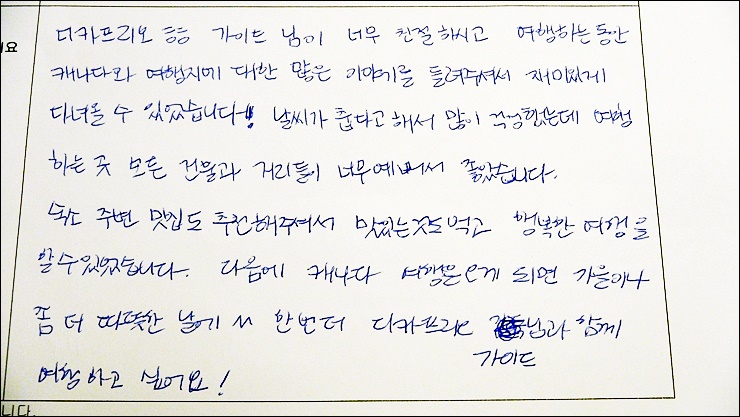 디카프리오 ㅎㅎ 가이드 님이 너무 친절하시고 여행하는 동안
캐나다와 여행지에 대한 많은 이야기를 들려주셔서 재미있게
다녀올 수 있었습니다! 날씨가 춥다고 해서 많이 걱정했는데 여행
하는 곳 모든 건물과 거리들이 너무 예뻐서 좋았습니다.
숙소 주변 맛집도 추천해주셔서 맛있는것도 먹고 행복한 여행을
할 수 있었습니다. 다음에 캐나다 여행을 오게 되면 가을이나
좀 더 따뜻한 날에 한번더 디카프리오 님과 함께
가이드
여행하고 싶어요!
니다.